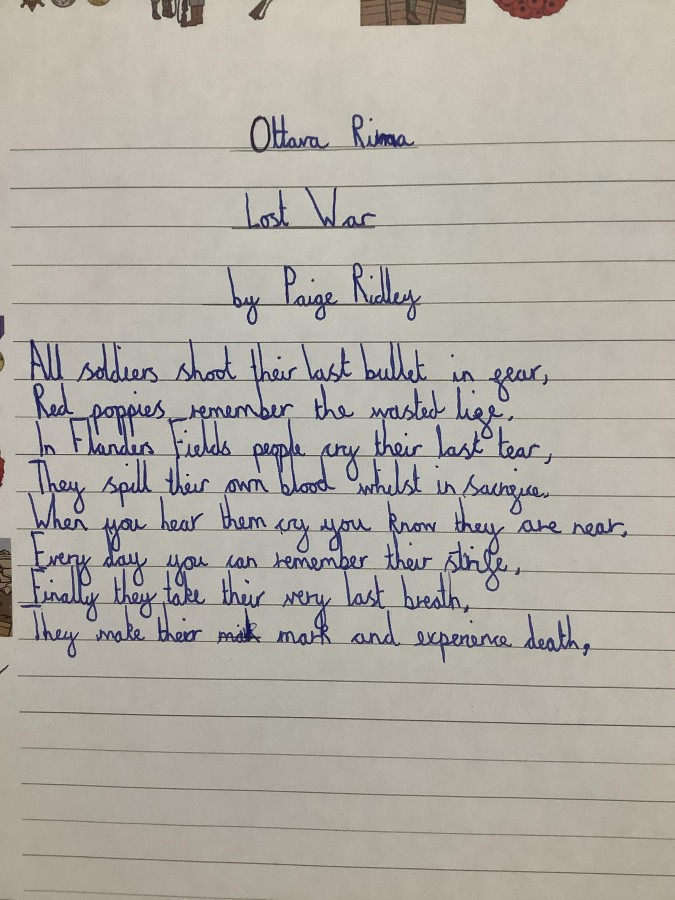 Ottava Rima
Lost War
by Paige Ridley
All soldiers shoot their last bullet in fear,
Red poppies remember the wasted life.
In Flanders Fields people cry their last tear,
They spill their own blood whilst in sacrifice.
When you hear them cry you know they are near,
Every day you can remember their strife,
Finally they take their very last breath,
They make their mark and experience death,